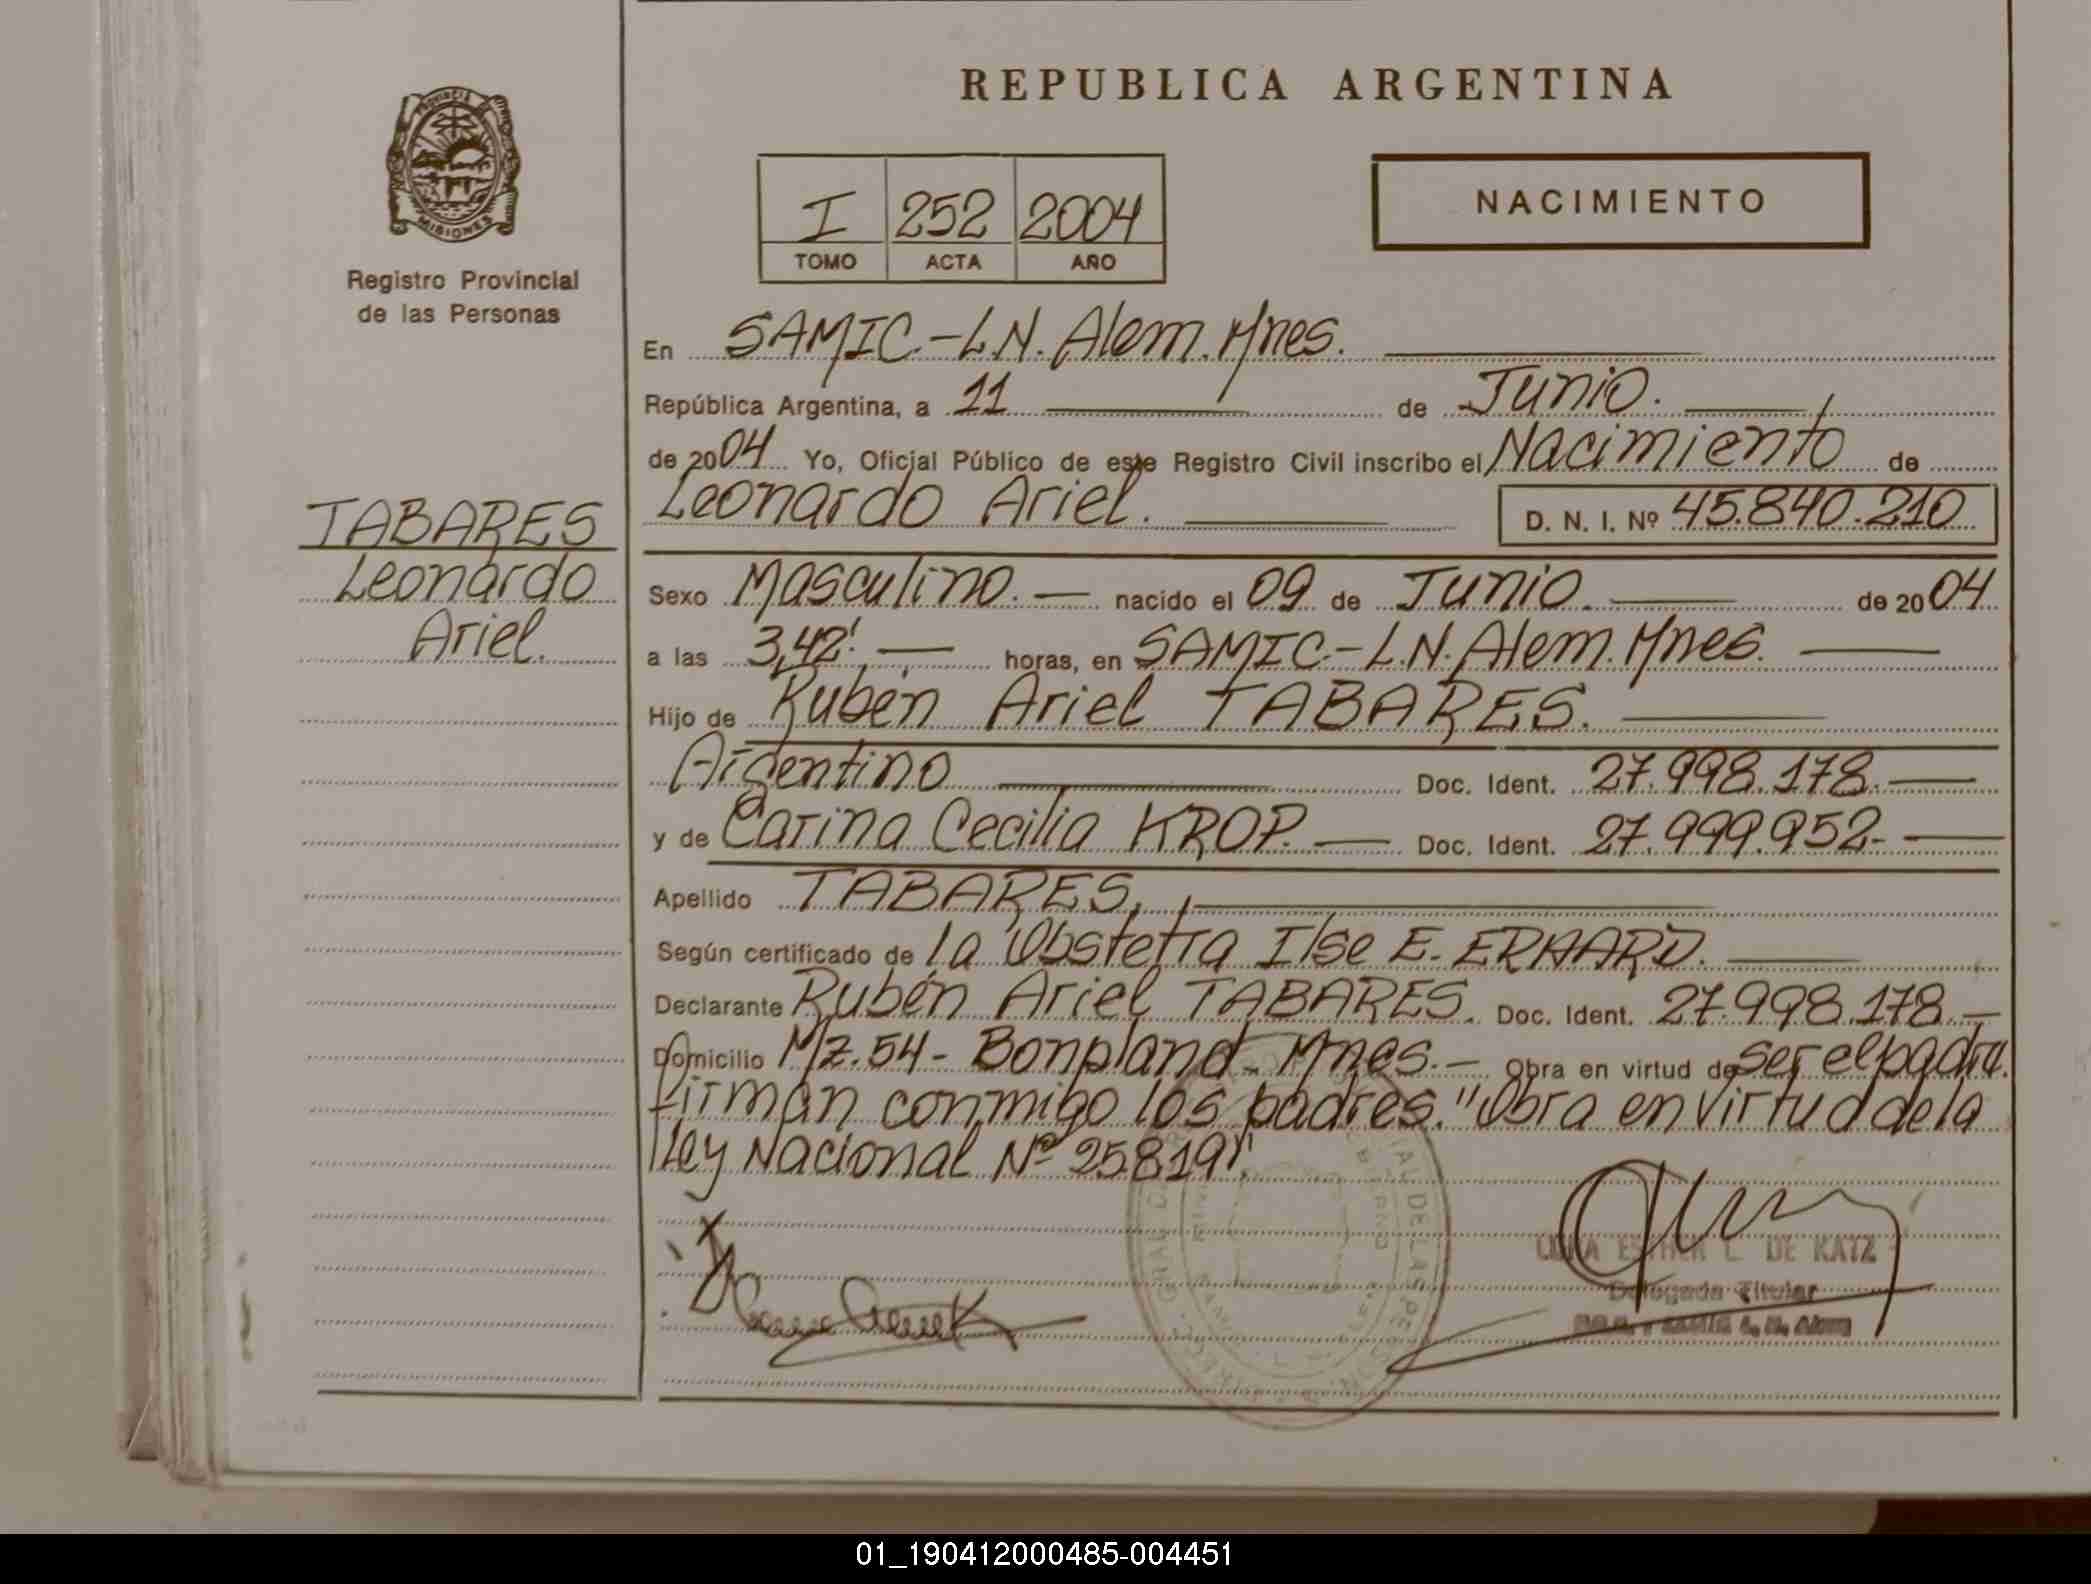 REPUBLICA ARGENTINA
PROVINCIA
MISIONES
Registro Provincial
de las Personas
I 252 2004
TOMO ACTA AÑO
NACIMIENTO
En SAMIC.-L.N. Alem. Mnes.
República Argentina, a 11 de Junio.
de 2004 Yo, Oficial Público de este Registro Civil inscribo el Nacimiento de
Leonardo Ariel. D. N. I. Nº 45.840.210
TABARES
Leonardo
Ariel.
Sexo Masculino. nacido el 09 de Junio. de 2004
a las 3,42'. horas, en SAMIC.-L.N. Alem. Mnes.
Hijo de Rubén Ariel TABARES.
Argentino Doc. Ident. 27.998.178.
y de Carina Cecilia KROP. Doc. Ident. 27.999.952-
Apellido TABARES.
Según certificado de la Obstetra Ilse E. ERHARD.
Declarante Rubén Ariel TABARES. Doc. Ident. 27.998.178.
Domicilio Mz.54- Bonpland. Mnes.- Obra en virtud de ser el padre.
firman conmigo los padres. "Obra en virtud de la
Ley Nacional Nº 25819".
ESTHER L. DE KATZ
Delegada Titular
01_190412000485-004451